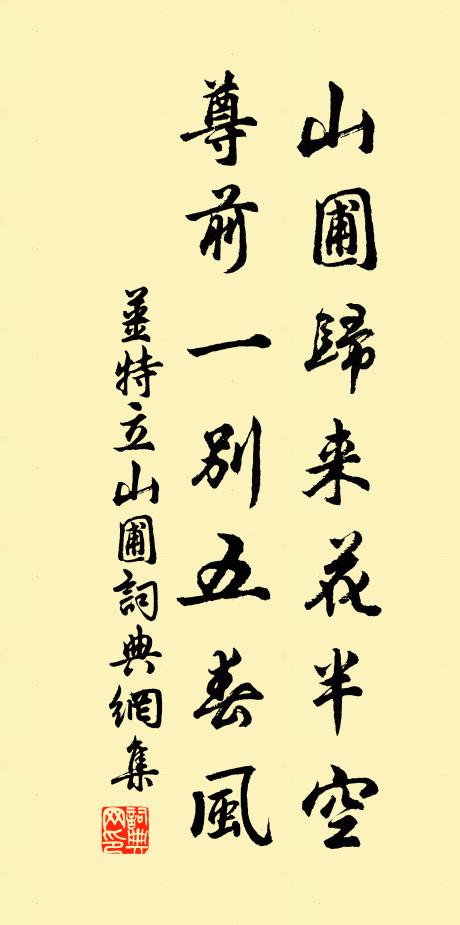 山圃歸来花半空
尊前一别五春風
薑特立山圃詞典網集
詞典网印